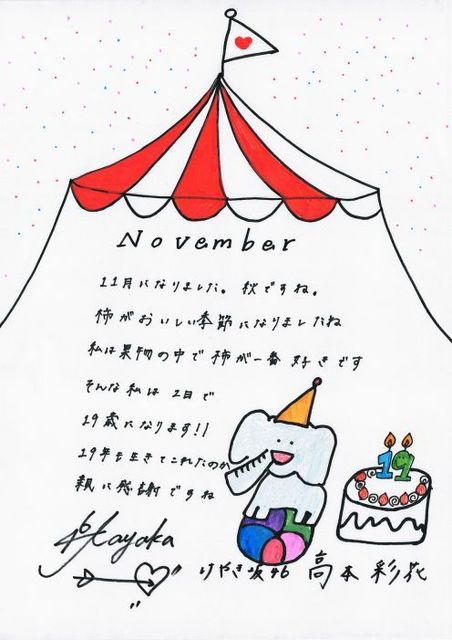 November
11月になりました。秋ですね。
柿がおいしい季節になりましたね
私は果物の中で柿が一番好きです
そんな私は2日で
19歳になります!!
19年も生きてこれたのが
親に感謝ですね
Ayaka
けやき坂46 高本彩花
19